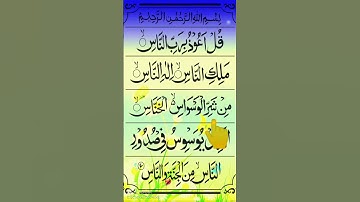 بِسْمِ اللهِ الرَّحْمٰنِ الرَّحِيْمِ
قُلْ اَعُوْذُ بِرَبِّ النَّاسِ
مَلِكِ النَّاسِ اِلٰهِ النَّاسِ
مِنْ شَرِّ الْوَسْوَاسِ الْخَنَّاسِ
يُوَسْوِسُ فِيْ صُدُوْرِ
النَّاسِ مِنَ الْجِنَّةِ وَالنَّاسِ